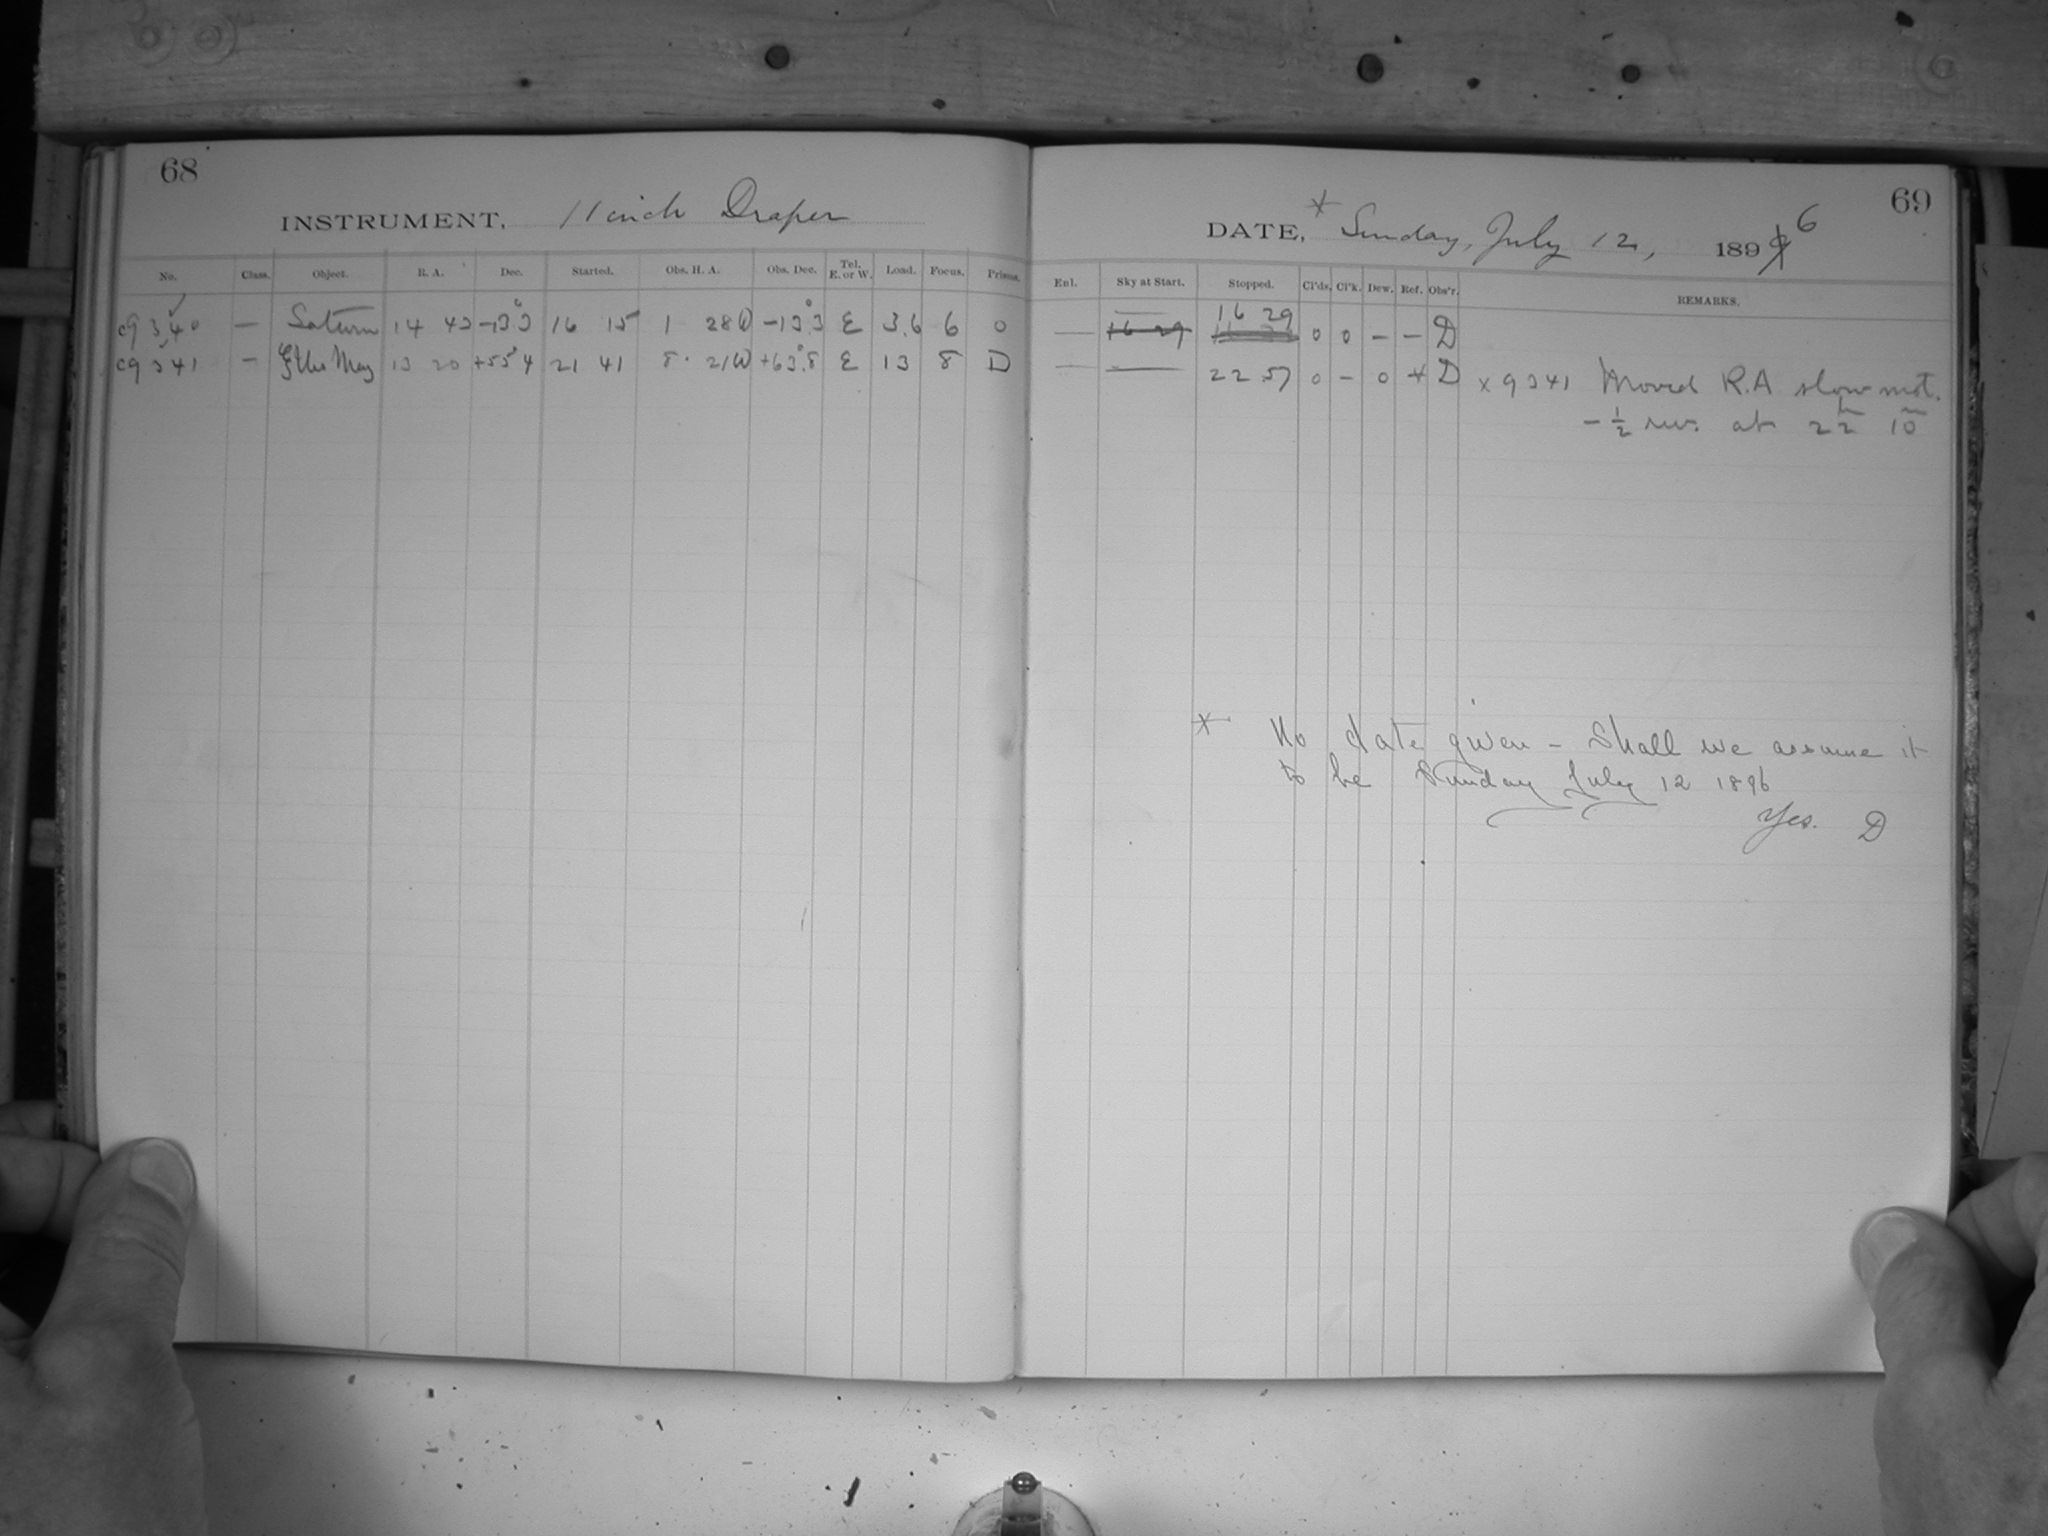 68
INSTRUMENT, 11 inch Draper
No. Class. Object. R. A. Dec. Started. Obs. H. A. Obs. Dec. Tel. E. or W. Load. Focus. Prisms.
c9340 — Saturn 14 43 -13°3 16 15 1 28W -13°.3 E 3.6 6 0
c9341 — 13 20 +55°4 21 41 8 21W +63°.8 E 13 8 D
69
DATE, * Sunday, July 12, 1896
Enl. Sky at Start. Stopped. Cl'ds. Cl'k. Dew. Ref. Obs'r. REMARKS.
— 16 29 16 29 0 0 — — D
— — 22 57 0 — 0 * D x 9341 Moved R.A slow mot.
- ½ rev. at 22h 10m
* No date given - Shall we assume it
to be Sunday July 12 1896
Yes. D